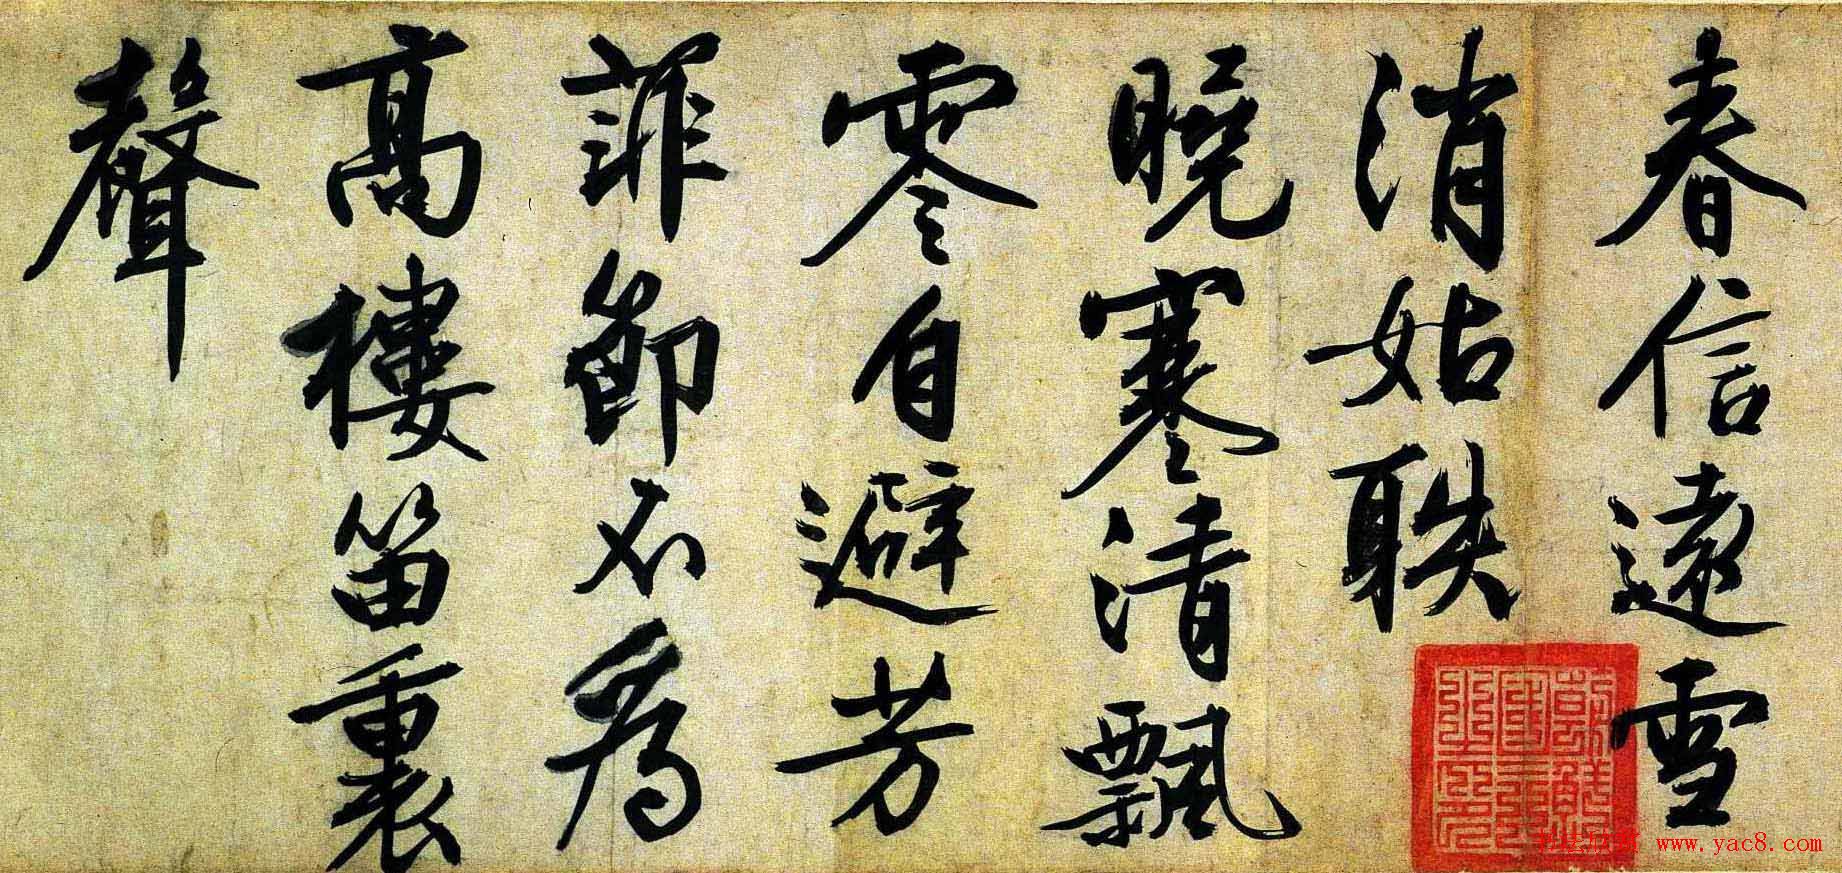 春信遠雪
消姑聅
曉寒清飄
零自避芳
菲節不為
高樓笛裏
聲
www.yac8.com